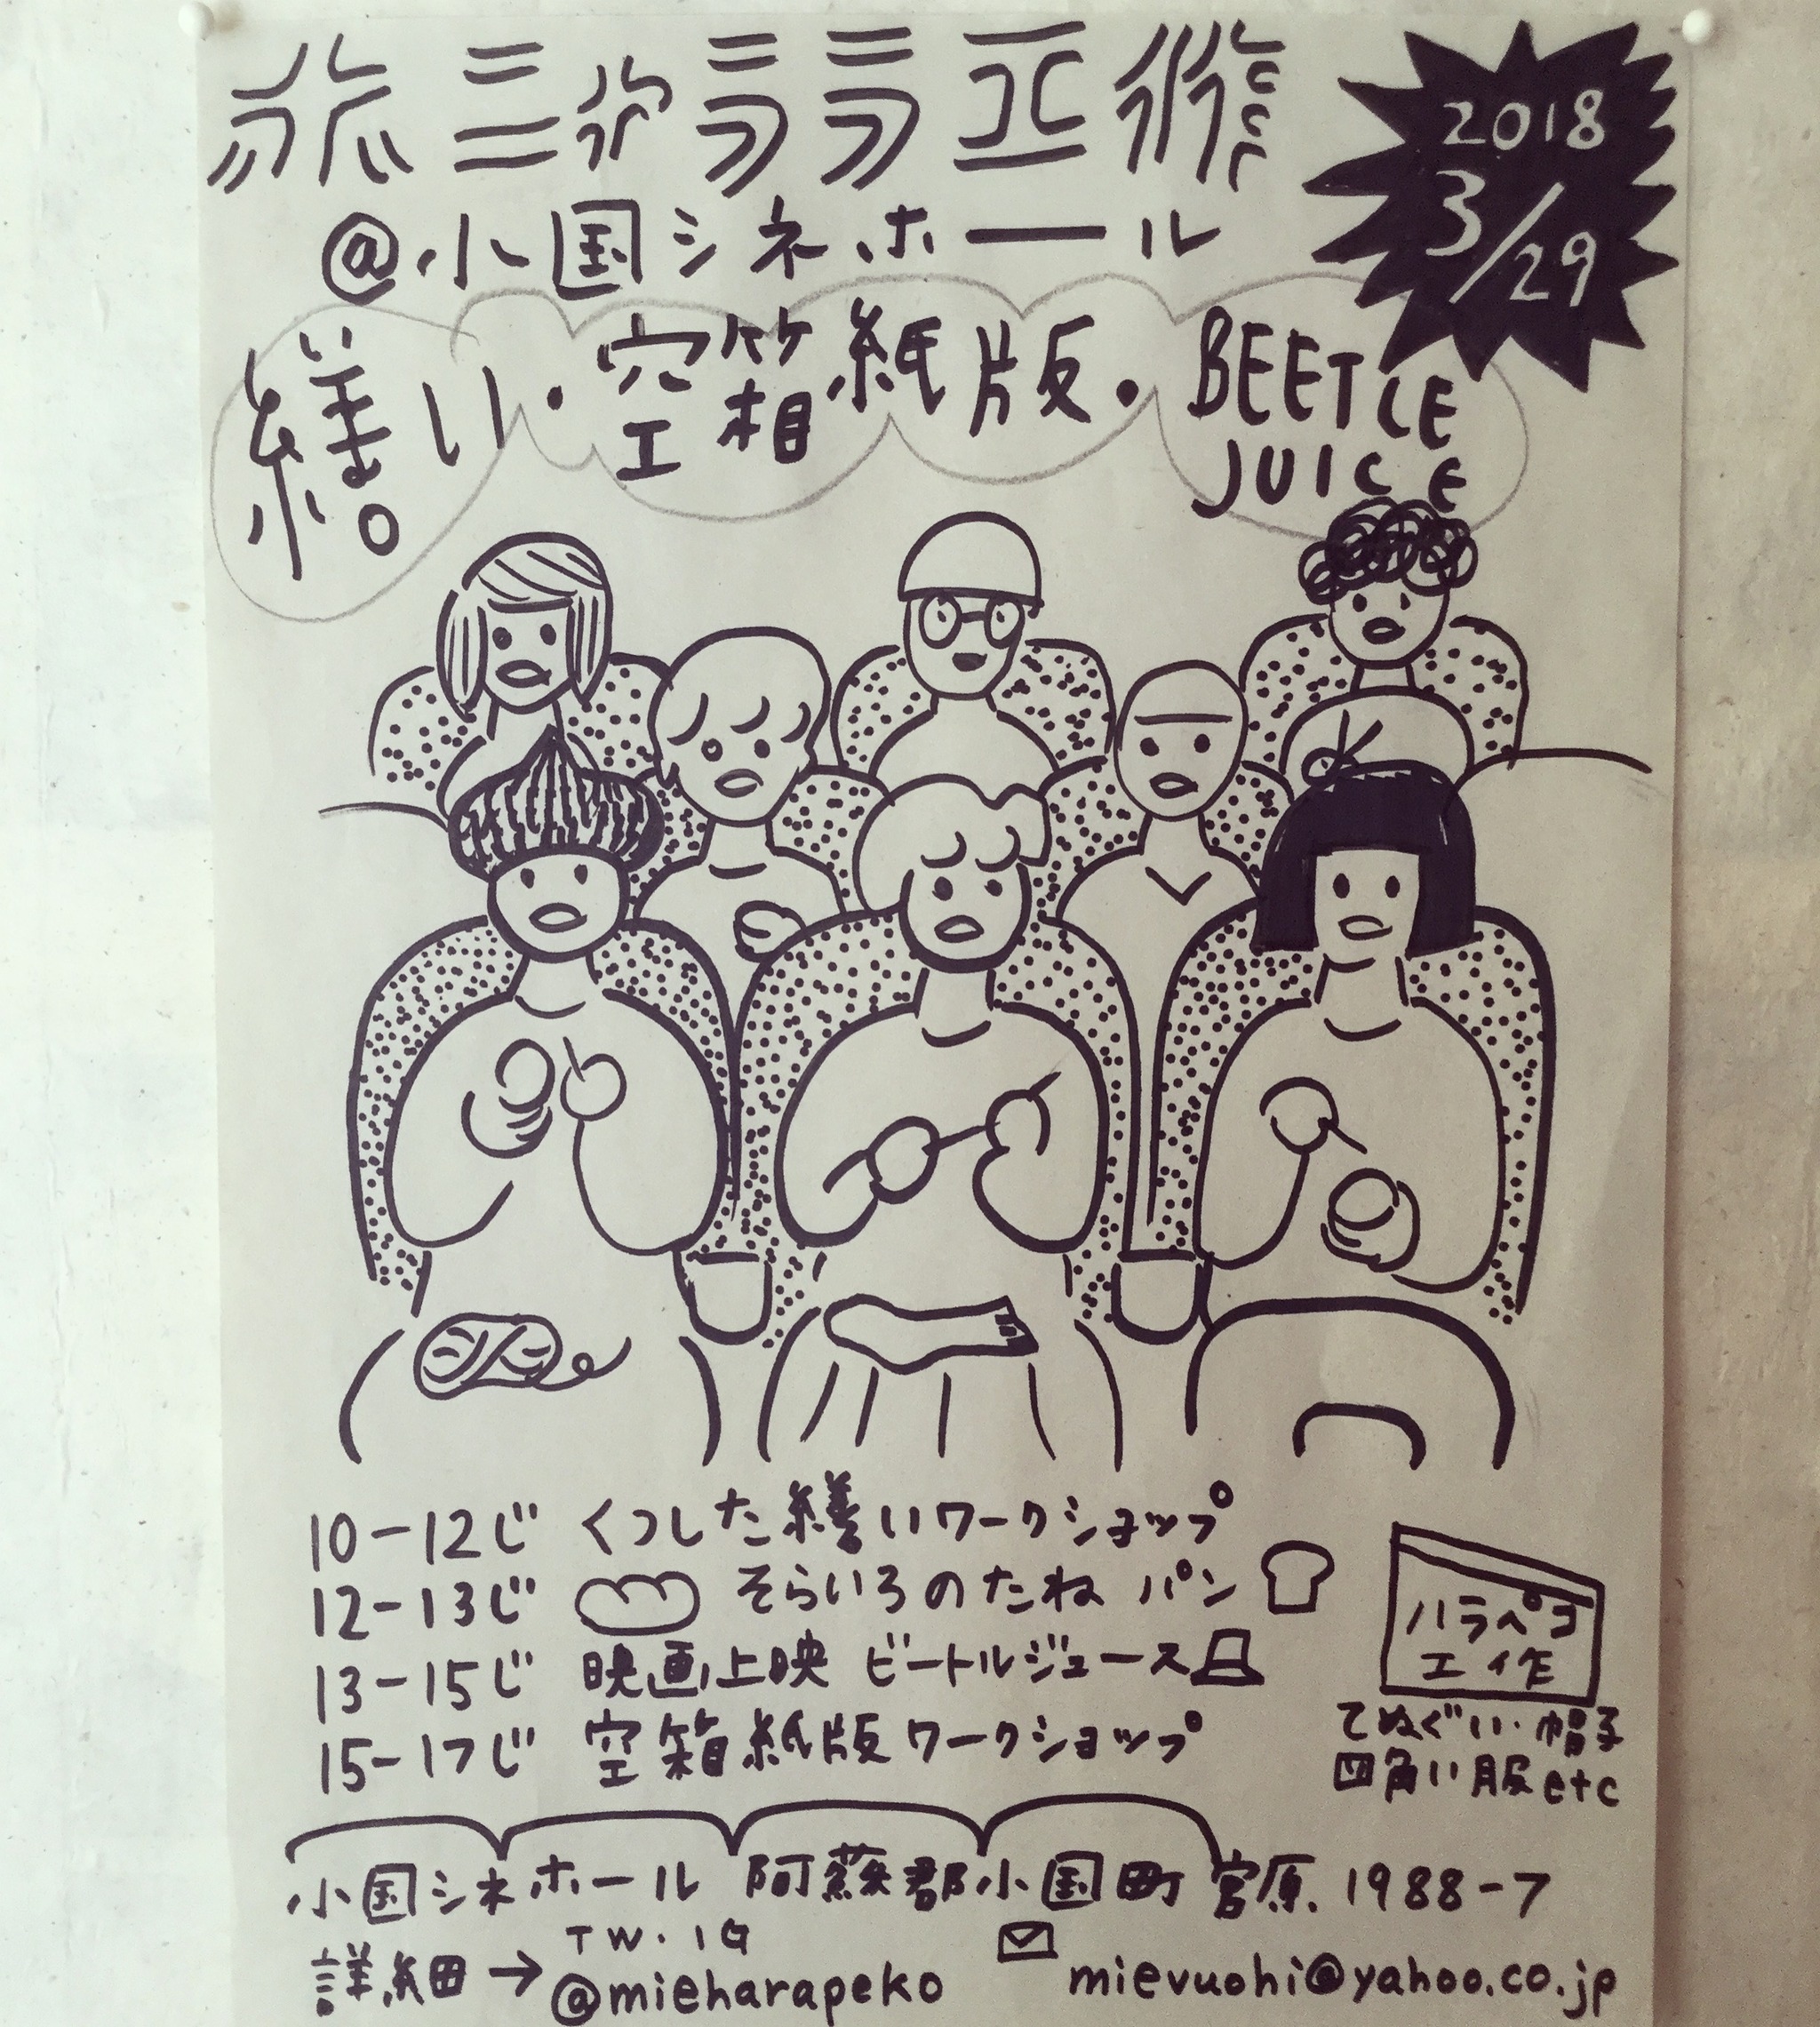 2018
3/29
@小国シネホール
繕い・空箱紙版・BEETLE
JUICE
10-12じ くつした繕いワークショップ
12-13じ そらいろのたね パン
13-15じ 映画上映 ビートルジュース
15-17じ 空箱紙版ワークショップ
ハラペコ
エイ作
てぬぐい・帽子
四角い服etc
小国シネホール 阿蘇郡小国町宮原1988-7
TW・IG
詳細→@mieharapeko mievuohi@yahoo.co.jp